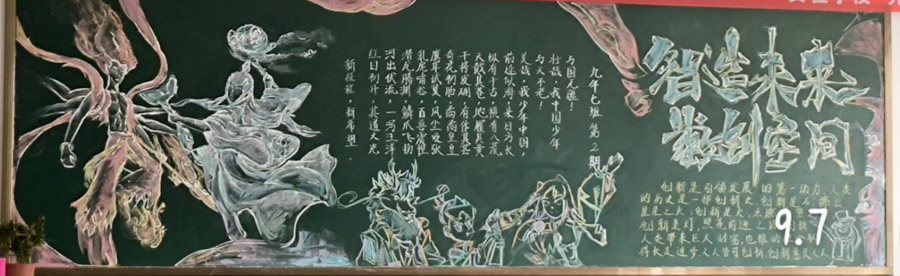 智造未来
创空间
九年七班 第2期
新征程,新希望.
红日初升,其道大光
河出伏流,一泻汪洋
潜龙腾渊,鳞爪飞扬
乳虎啸谷,百兽震惶
鹰隼试翼,风尘吸张
奇花初胎,矞矞皇皇
干将发硎,有作其芒
天戴其苍,地履其黄
纵有千古,横有八荒
前途似海,来日方长
美哉,我少年中国,
与天不老!
壮哉,我中国少年
与国无疆!
创新是引领发展的第一动力,人类
的历史是一部创新史,创新是石,擦出
星星之火;创新是火,点燃
创新是灯,照亮前进之路
人类带来巨大财富,也推
进步,人人皆可创新,创新惠及人人
9.7